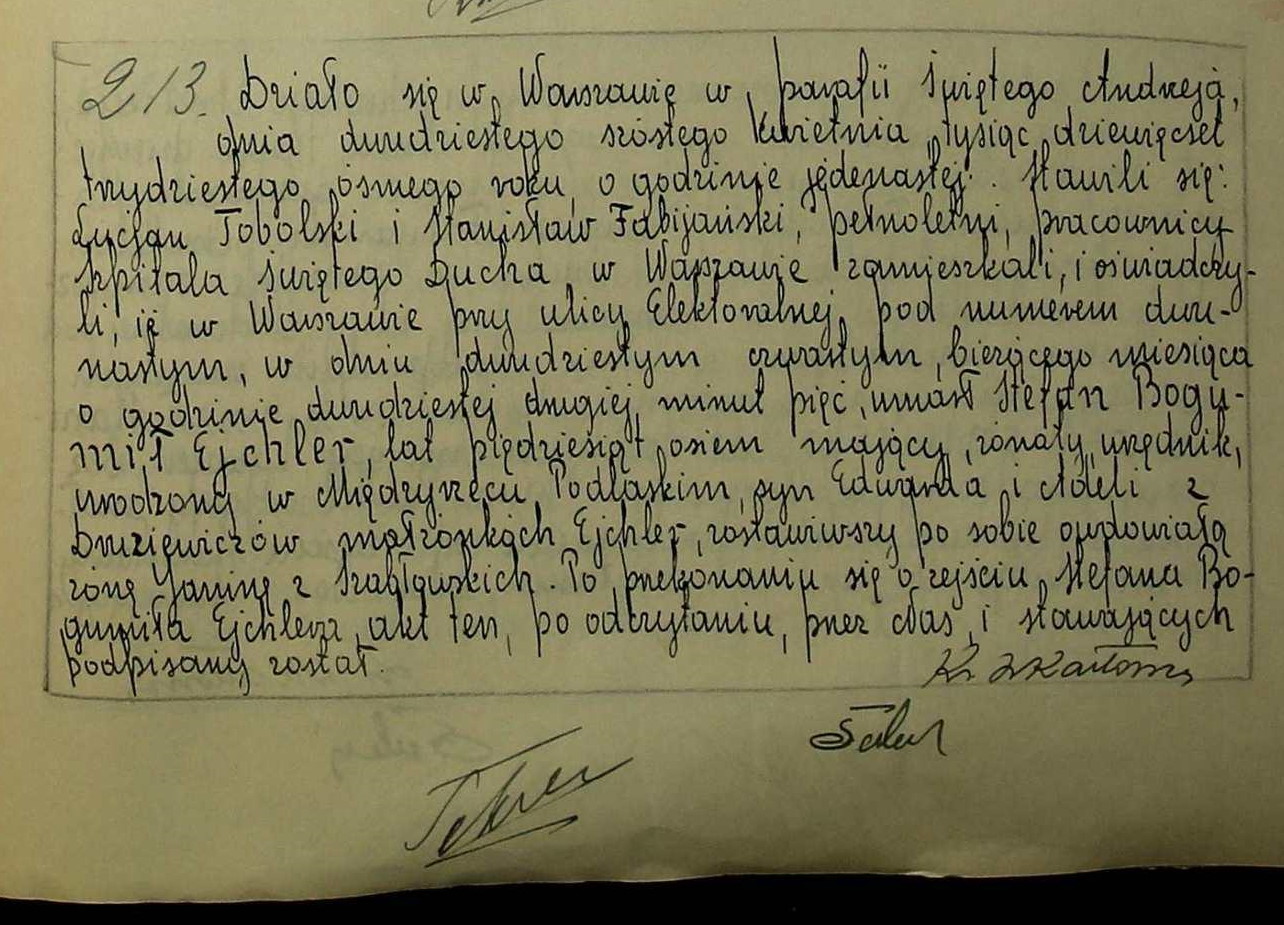 213. Działo się w Warszawie w parafii Świętego Andrzeja,
dnia dwudziestego szóstego kwietnia tysiąc dziewięcset
trzydziestego ósmego roku o godzinie jedenastej. Stawili się:
Lucjan Tobolski i Stanisław Fabijański, pełnoletni, pracownicy
szpitala Świętego Ducha w Warszawie zamieszkali, i oświadczy-
li, iż w Warszawie przy ulicy Elektoralnej pod numerem dwu-
nastym, w dniu dwudziestym czwartym bieżącego miesiąca
o godzinie dwudziestej drugiej minut pięć, umarł Stefan Bogu-
mił Ejchler, lat pięćdziesiąt osiem mający, żonaty, urzędnik,
urodzony w Międzyrzecu Podlaskim, syn Edwarda i Adeli z
małżonkách Ejchler, zostawiwszy po sobie owdowiałą
żonę Janinę z Po przekonaniu się o zejściu Stefana Bo-
gumiła Ejchlera, akt ten, po odczytaniu, przez Nas i stawających
podpisany został.